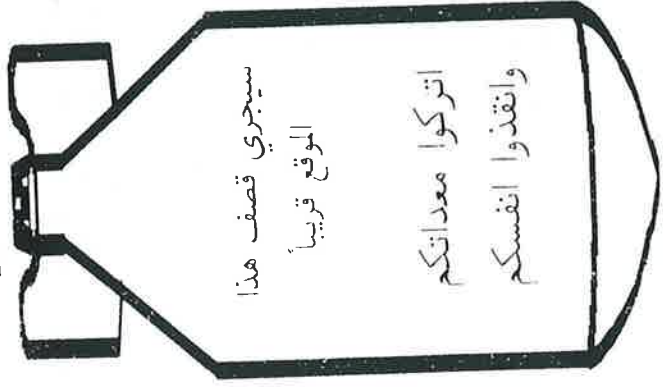 سيجري قصف هذا
الموقع قريباً
اتركوا معداتكم
وانقذوا انفسكم